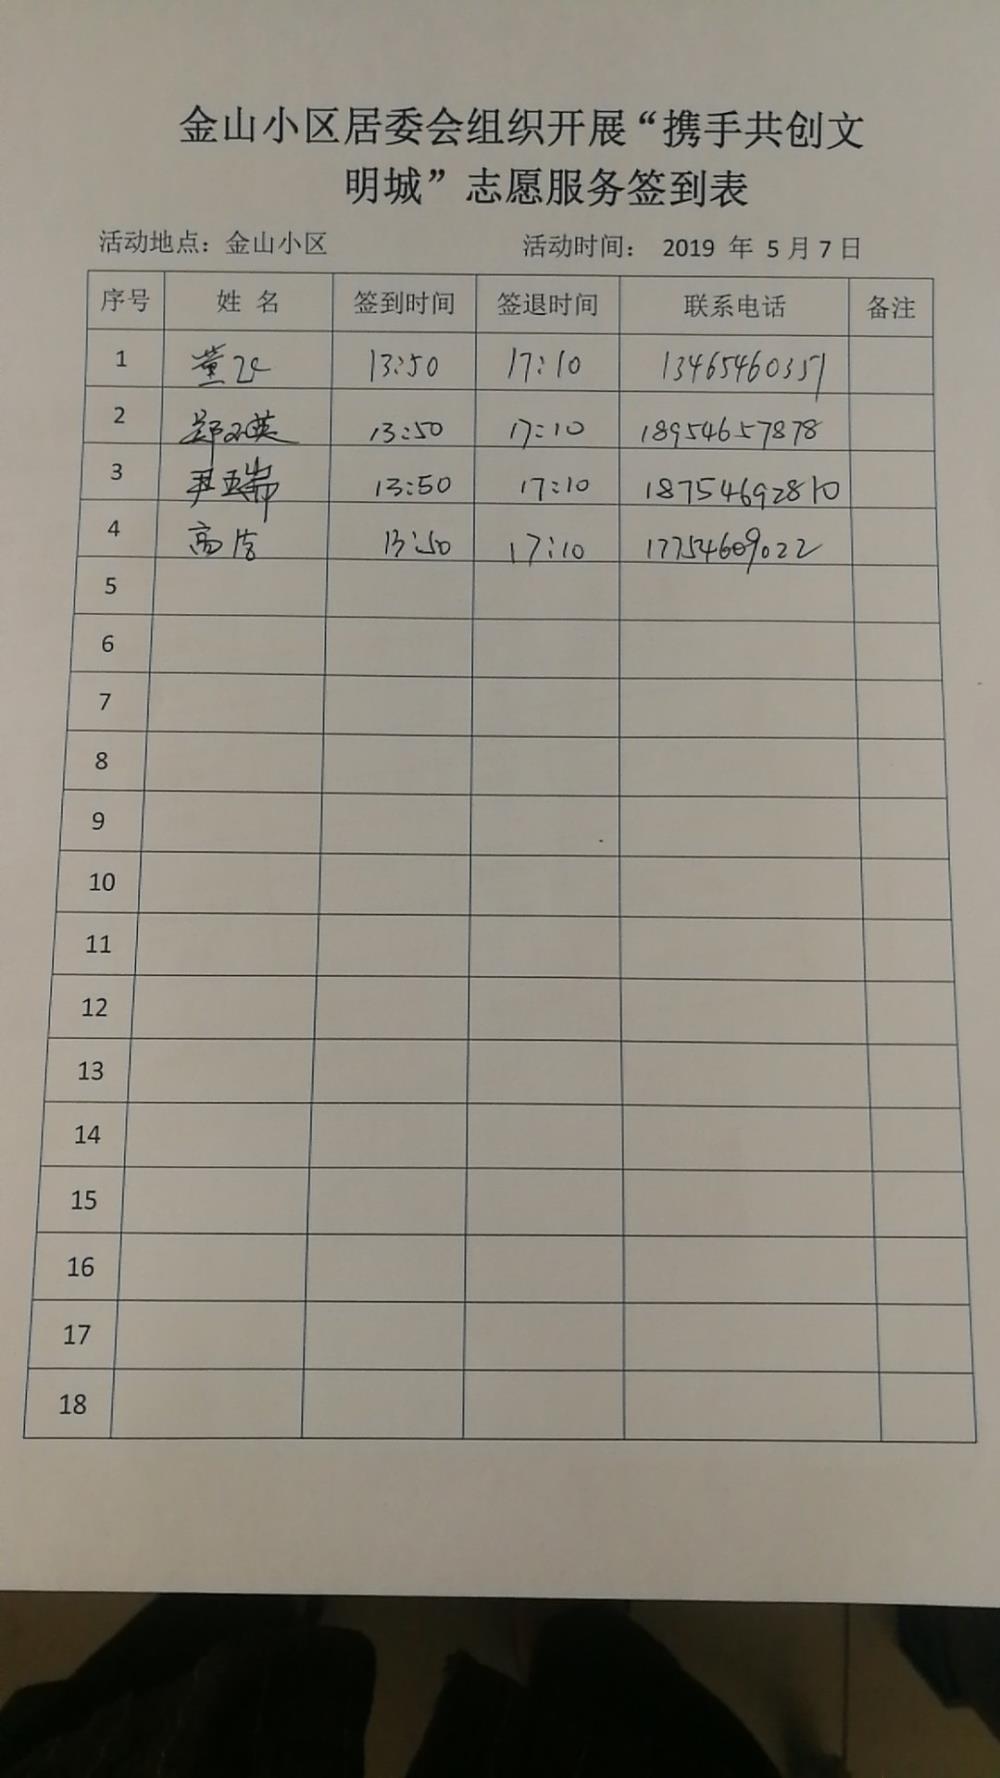 金山小区居委会组织开展“携手共创文
明城”志愿服务签到表
活动地点：金山小区 活动时间： 2019 年 5 月 7 日
序号 姓 名 签到时间 签退时间 联系电话 备注
1 董 13:50 17:10 13465460351
2 郑 英 13:50 17:10 18954657878
3 尹 瑞 13:50 17:10 18754692810
4 高洁 13:50 17:10 17754609022
5
6
7
8
9
10
11
12
13
14
15
16
17
18